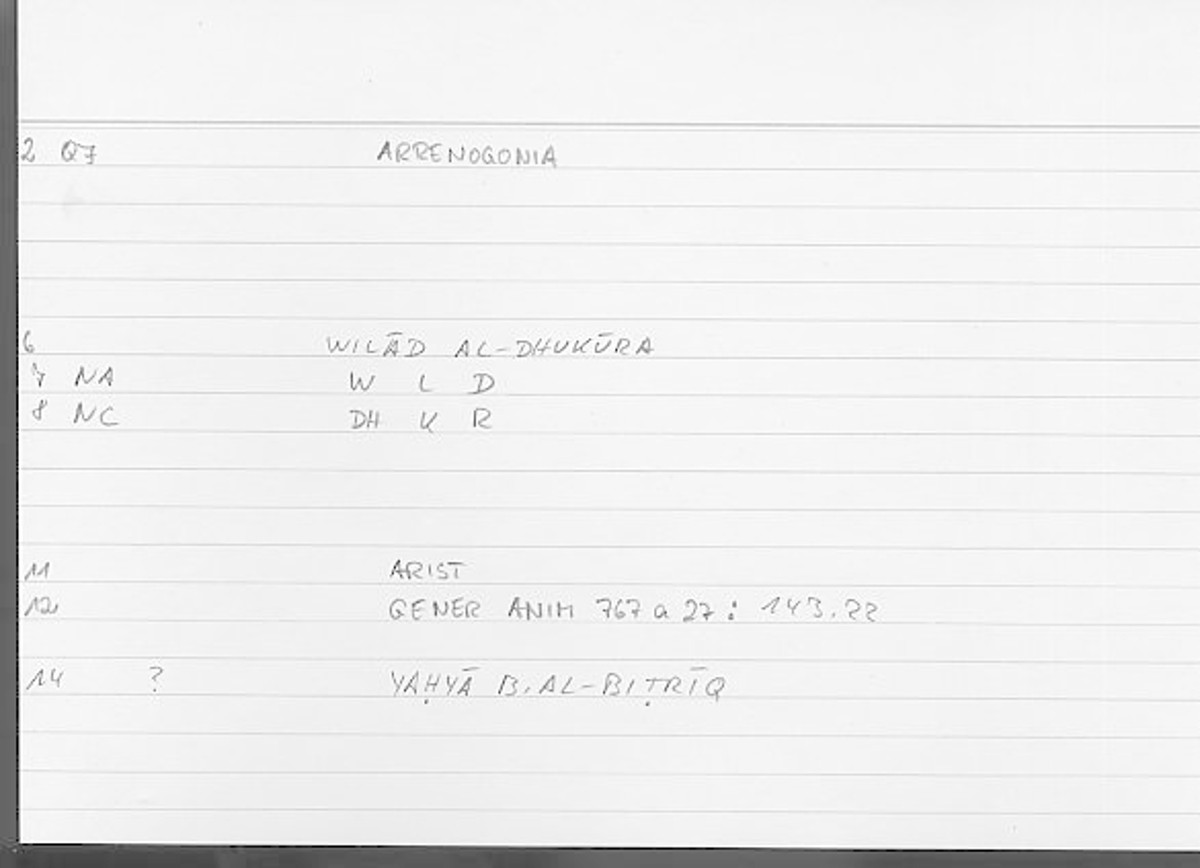 2 Q7 ARRENOGONIA
6 WILĀD AL-DHUKŪRA
7 NA W L D
8 NC DH K R
11 ARIST
12 GENER ANIM 767 a 27 : 143.22
14 ? YAḤYĀ B. AL-BIṬRĪQ